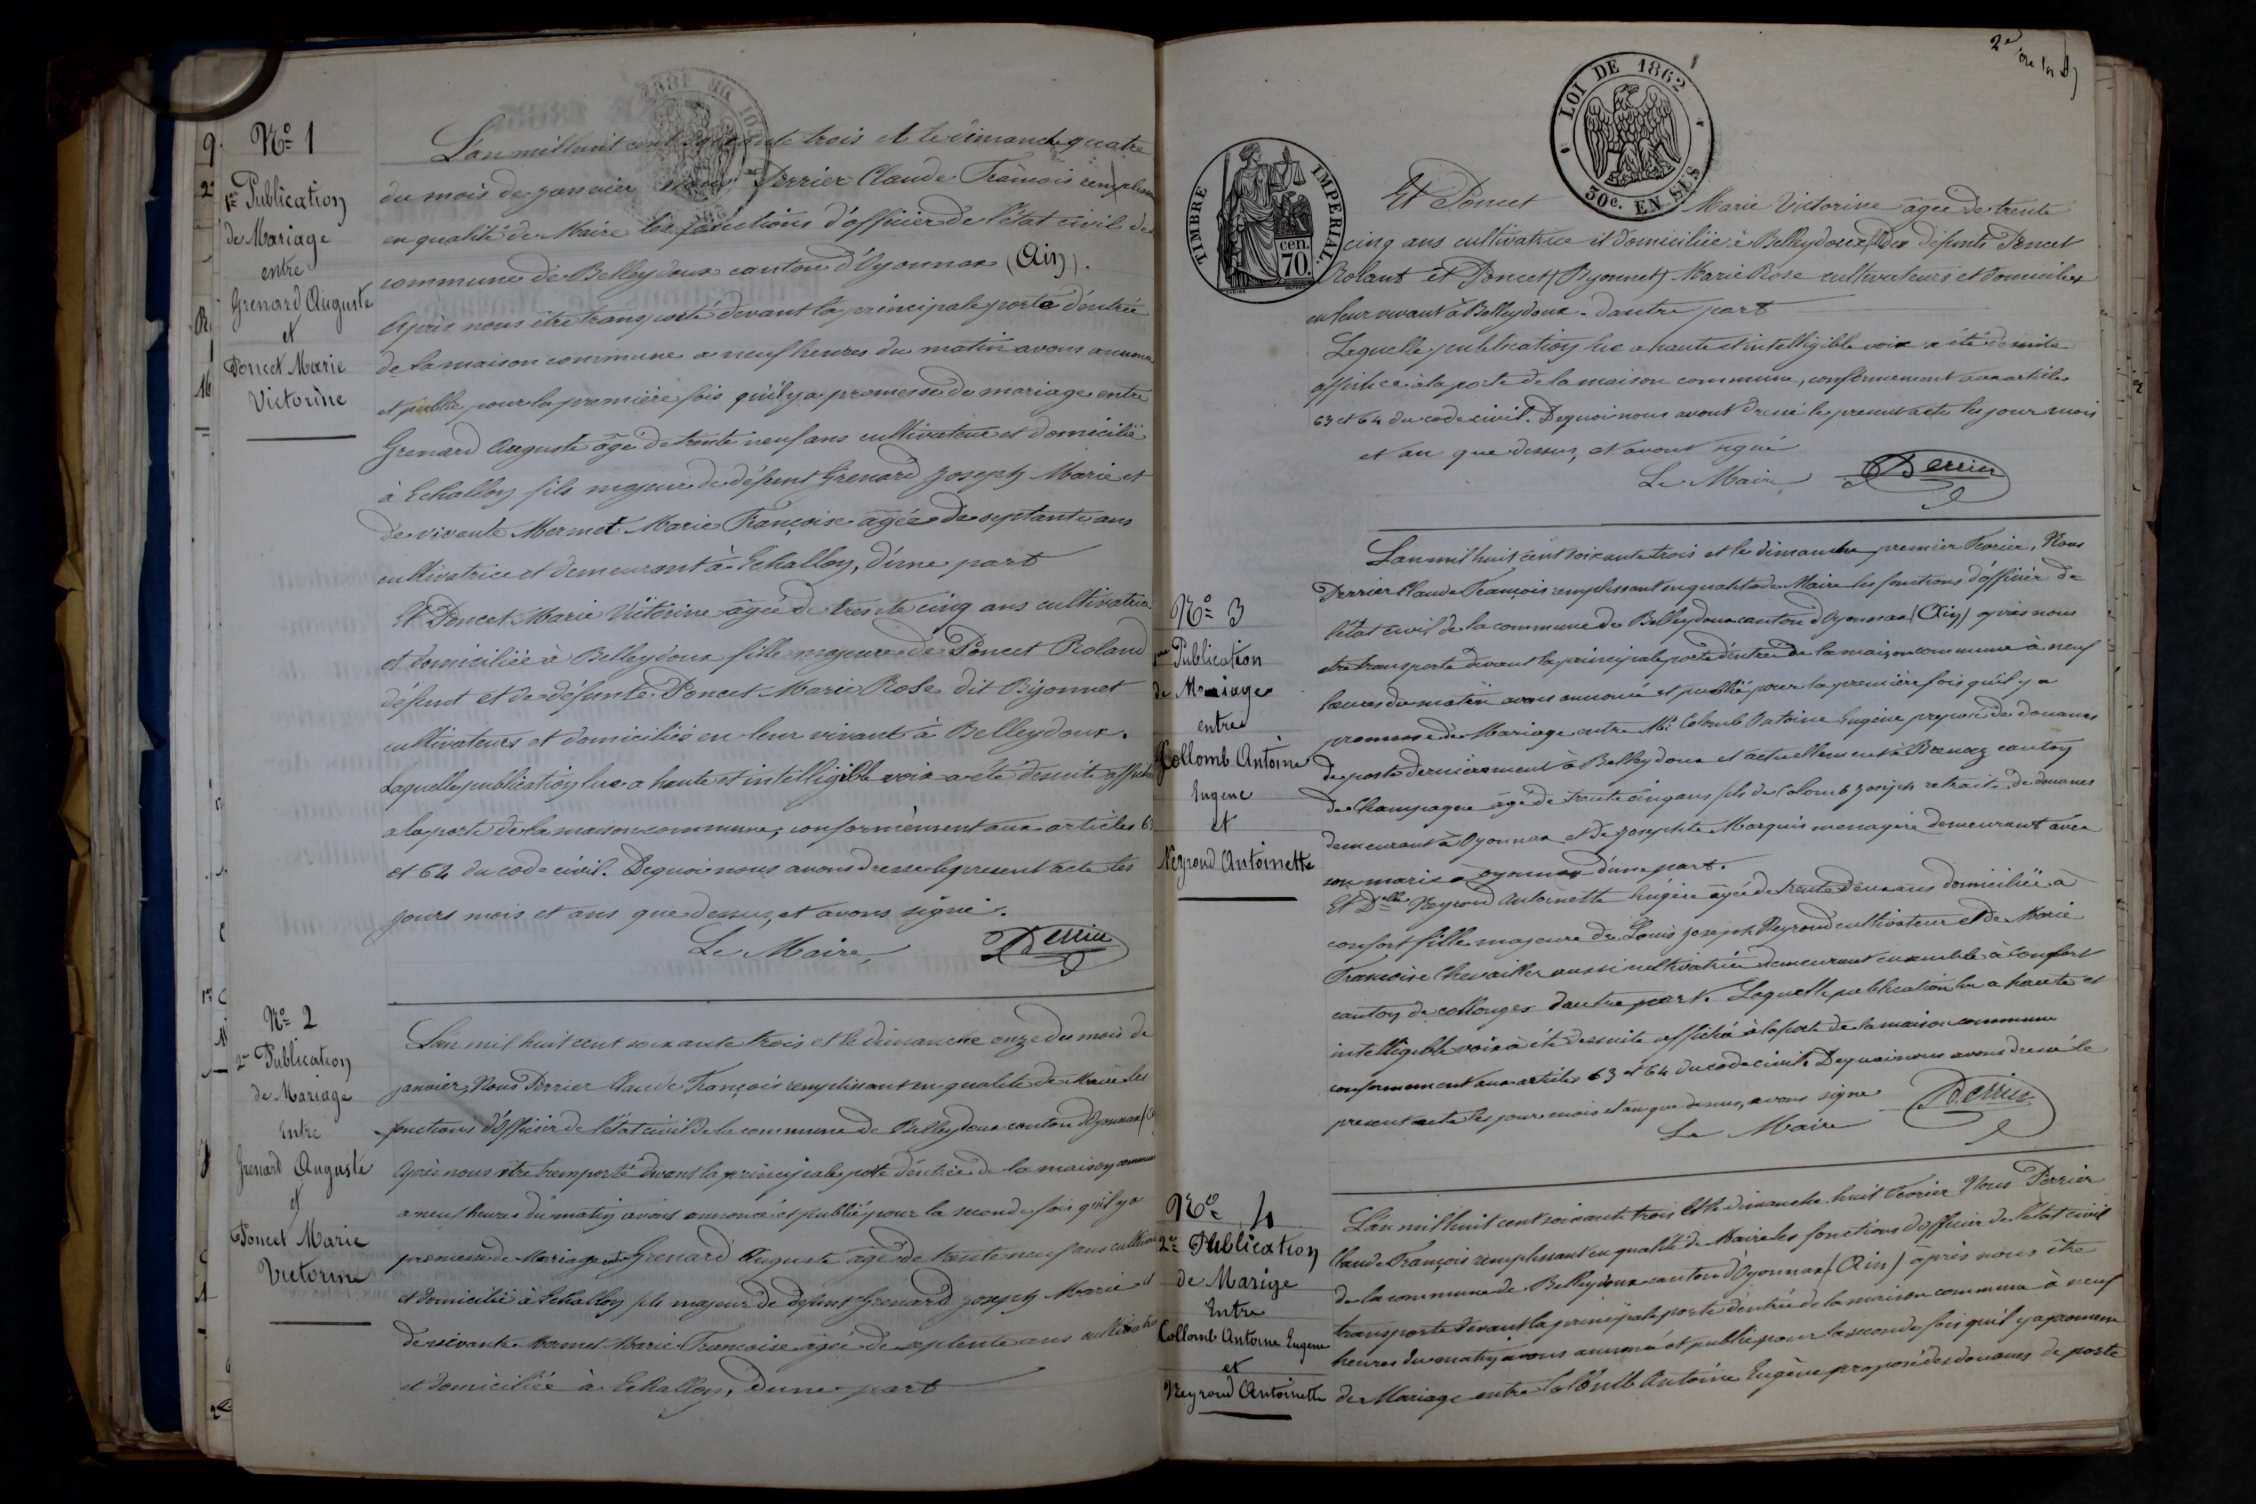 N° 1
1re Publication
de Mariage
entre
Grenard Auguste
et
Poncet Marie
Victorine
L'an mil huit cent soixante trois et le dimanche quatre
du mois de janvier Nous Perrier Claude François
en qualité de Maire les fonctions d'officier de l'état civil de
commune de Belleydoux canton d'Oyonnax (Ain).
Après nous être transporté devant la principale porte d'entrée
de la maison commune a neuf heures du matin avons annoncé
et publié pour la première fois qu'il y a promesse de mariage entre
Grenard Auguste âgé de trente neuf ans cultivateur et domicilié
à Echallon fils majeur de défunt Grenard Joseph Marie et
de vivante Mermet Marie Françoise agée de septante ans
cultivatrice et demeurant à Echallon, d'une part
Et Poncet Marie Victorine agée de trente cinq ans cultivatrice
et domiciliée à Belleydoux fille majeure de Poncet Roland
défunt et de défunte Poncet Marie Rose dit Byonnet
cultivateurs et domiciliés en leur vivant à Belleydoux.
Laquelle publication lue a haute et intelligible voix a été desuite affichée
a la porte de la maison commune, conformément aux articles 63
et 64 du code civil. De quoi nous avons dressé le present acte les
jours mois et ans que dessus, et avons signé.
Le Maire, Perrier
N° 2
2e Publication
de Mariage
Entre
Grenard Auguste
et
Poncet Marie
Victorine
L'an mil huit cent soixante trois et le dimanche onze du mois de
janvier, Nous Perrier Claude François remplissant en qualité de Maire les
fonctions d'Officier de l'état civil de la commune de Belleydoux canton d'Oyonnax
Après nous être transporté devant la principale porte d'entrée de la maison commune
a neuf heures du matin avons annoncé et publié pour la seconde fois qu'il y a
promesse de Mariage entre Grenard Auguste agé de trente neuf ans
et domicilié à Echallon fils majeur de défunt Grenard Joseph Marie et
de vivante Mermet Marie Françoise agée de septente ans cultivatrice
et domiciliée à Echallon, d'une part
2e
LOI DE 1862
30c. EN SUS
TIMBRE IMPERIAL.
cen.
70.
Et Poncet Marie Victorine âgée de trente
cinq ans cultivatrice et domiciliée à Belleydoux défunts Poncet
Rolant et Poncet (Byonnet) Marie Rose cultivateurs et domiciliés
en leur vivant à Belleydoux. d'autre part
Laquelle publication lue a haute et intelligible voix a été desuite
affichée à la porte de la maison commune, conformement aux articles
63 et 64 du code civil. De quoi nous avont dressé le present acte les jour mois
et an que dessus, et avont signé
Le Maire Perrier
N° 3
Publication
de Mariage
entre
Collomb Antoine
Eugene
et
Neyroud Antoinette
L'an mil huit cent soixante trois et le dimanche premier Fevrier, Nous
Perrier Claude François remplissant en qualité de Maire les fonctions d'officier de
l'état civil de la commune de Belleydoux canton d'Oyonnax (Ain) après nous
etre transporte devant la principale porte d'entrée de la maison commune à neuf
heures du matin avons annoncé et publié pour la première fois qu'il y a
promesse de Mariage entre Mr Colomb Antoine Eugène preposé des douanes
de poste dernièrement à Belleydoux et actuellement à Brenaz canton
de Champagne âgé de trente cinq ans fils de Colomb Joseph retraité de douanes
demeurant à Oyonnax et de Josephte Marquis menagère demeurant avec
son mari a Oyonnax d'une part.
Et Delle Neyroud Antoinette Eugénie agée de trente deux ans domiciliée à
confort fille majeure de Louis Joseph Neyroud cultivateur et de Marie
Françoise Chevallier aussi cultivatrice demeurant ensemble à Confort
canton de collonges d'autre part. Laquelle publication lue a haute et
intelligible voix à été desuite affiché à la porte de la maison commune
conformement aux articles 63 et 64 du code civil. De quoi nous avons dressé le
present acte les jour mois et an que dessus, avons signé
Le Maire Perrier
N° 4
2e Publication
de Marige
Entre
Collomb Antoine Eugene
et
Neyroud Antoinette
L'an mil huit cent soixante trois et le dimanche huit Fevrier Nous Perrier
Claude François remplissant en qualité de Maire les fonctions d'officier de l'état civil
de la commune de Belleydoux canton d'Oyonnax (Ain) après nous être
transporté devant la principale porte d'entrée de la maison commune à neuf
heures du matin avons annoncé et publié pour la seconde fois qu'il y a promesse
de Mariage entre Colomb Antoine Eugène preposé des douanes de poste